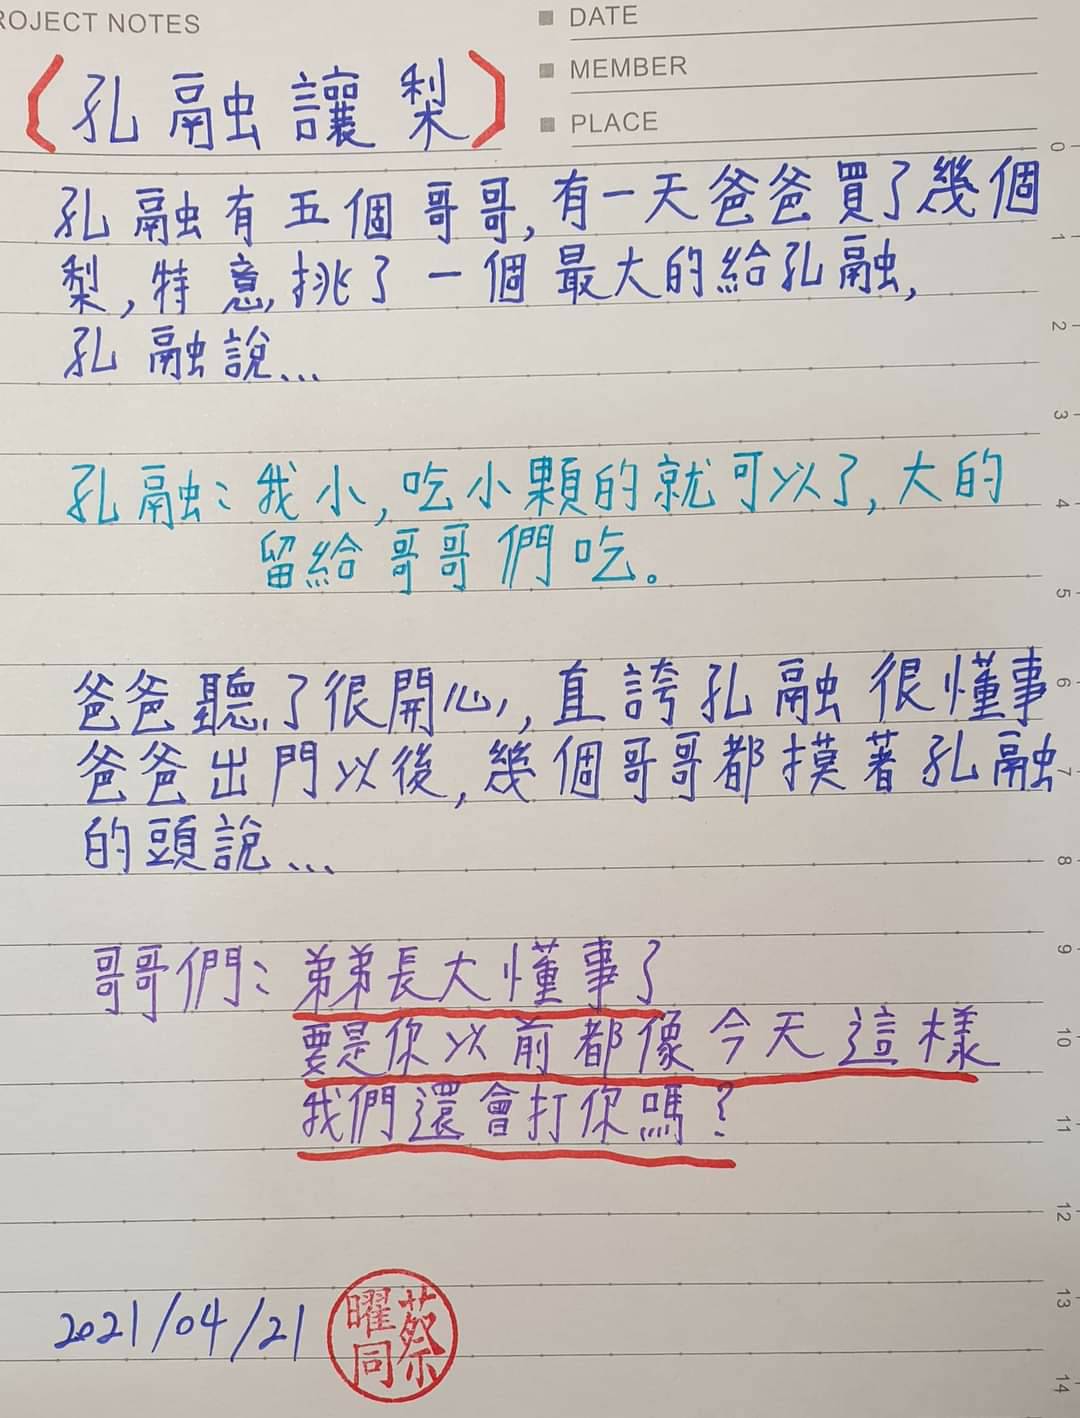 ROJECT NOTES
DATE
MEMBER
PLACE
(孔融讓梨)
孔融有五個哥哥,有一天爸爸買了幾個
梨,特意挑了一個最大的給孔融,
孔融說...
孔融:我小,吃小顆的就可以了,大的
留給哥哥們吃。
爸爸聽了很開心,直誇孔融很懂事
爸爸出門以後,幾個哥哥都摸著孔融
的頭說...
哥哥們:弟弟長大懂事了
要是你以前都像今天這樣
我們還會打你嗎?
2021/04/21
蔡曜同
0
1
2
3
4
5
6
7
8
9
10
11
12
13
14